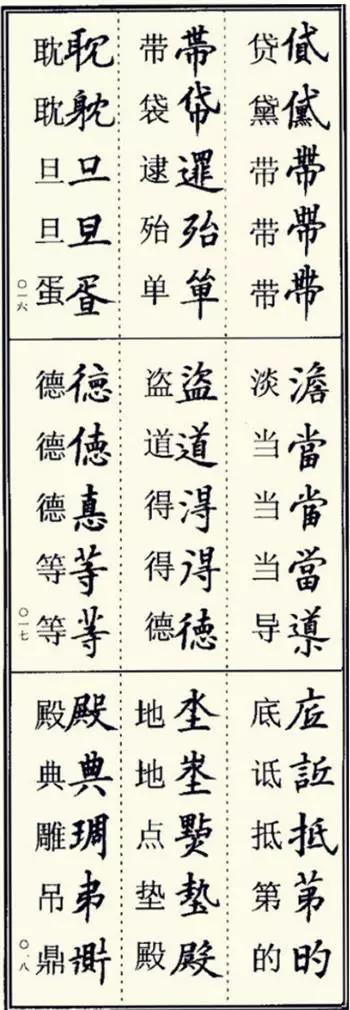 貸黛帶帶帶
贷黛带带带
帶帒殆單
带袋逮殆单
耽躭旦旦
耽耽旦旦蛋
〇一六
澹當當當導
淡当当当导
盜道淂得徳
盗道得得德
徳徳悳等等
德德德等等
〇一七
抵苐旳
底诋抵第的
坔埊墊殿
地地点垫殿
殿典琱弔
殿典雕吊鼎
〇一八